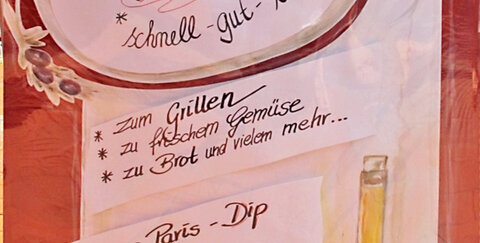 * schnell - gut -
* zum Grillen
* zu frischem Gemüse
* zu Brot und vielem mehr...
Paris - Dip